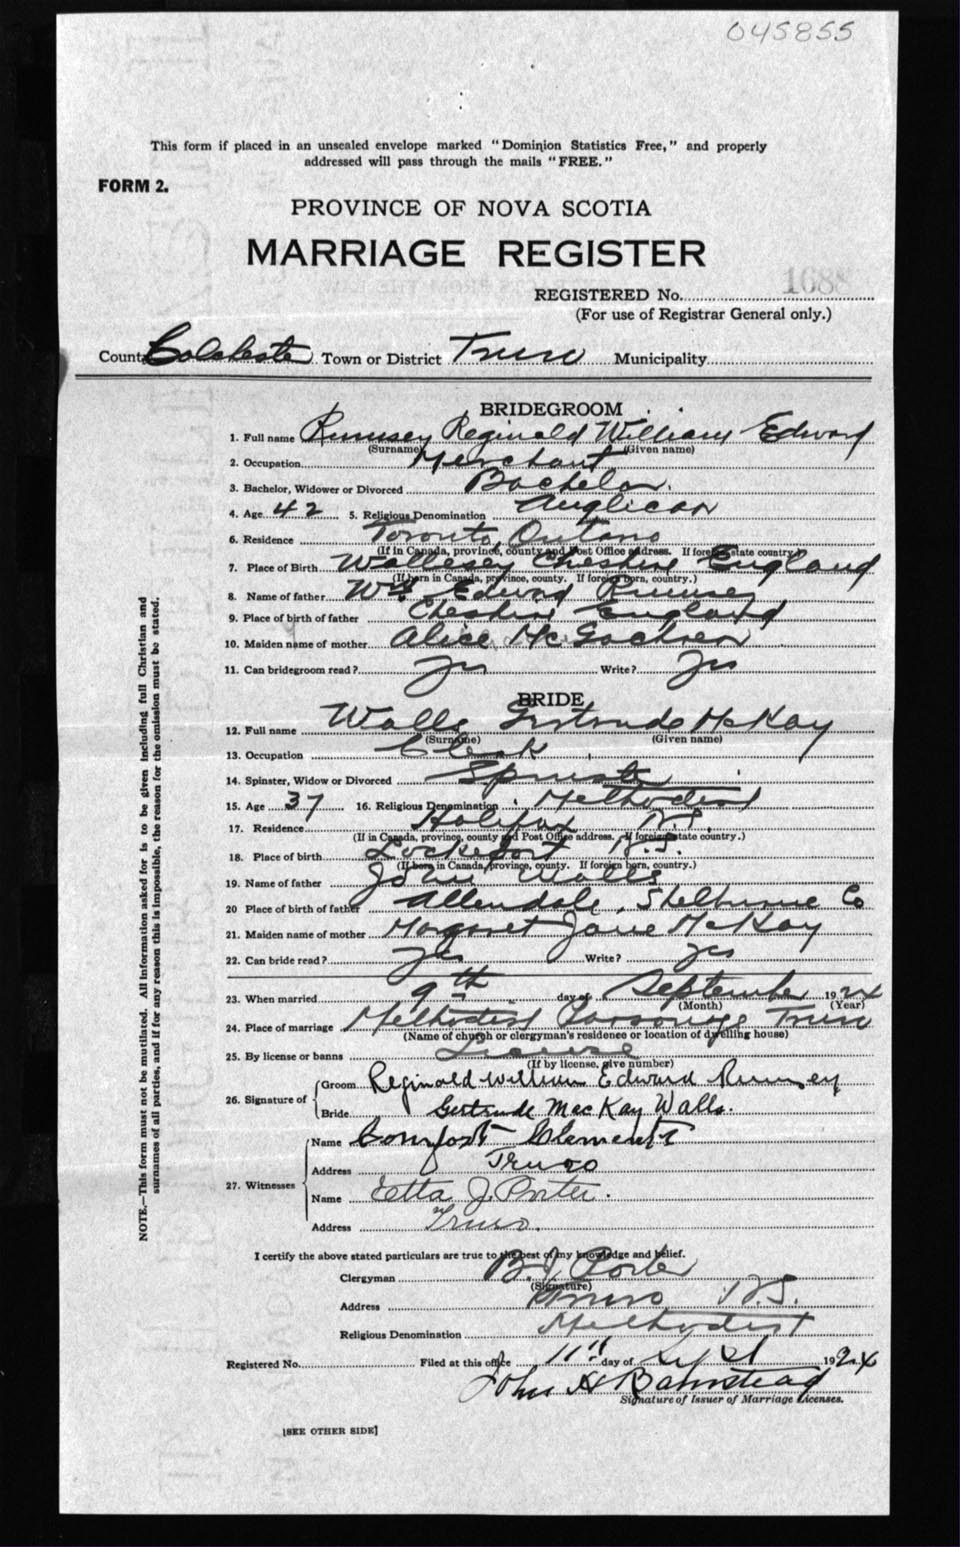 045855
This form if placed in an unsealed envelope marked "Dominion Statistics Free," and properly
addressed will pass through the mails "FREE."
FORM 2.
PROVINCE OF NOVA SCOTIA
MARRIAGE REGISTER
REGISTERED No. 1688
(For use of Registrar General only.)
County Colchester Town or District Truro Municipality
BRIDEGROOM
1. Full name Rumsey Reginald William Edward
(Surname) (Given name)
2. Occupation Merchant
3. Bachelor, Widower or Divorced Bachelor.
4. Age 42 5. Religious Denomination Anglican
6. Residence Toronto, Ontario
(If in Canada, province, county and Post Office address. If foreign state country.)
7. Place of Birth Wallasey Cheshire England
(If born in Canada, province, county. If foreign born, country.)
8. Name of father Wm Edward Rumsey
9. Place of birth of father Cheshire England
10. Maiden name of mother Alice
11. Can bridegroom read? Yes Write? Yes
BRIDE
12. Full name Walls Gertrude McKay
(Surname) (Given name)
13. Occupation Clerk
14. Spinster, Widow or Divorced Spinster
15. Age 37 16. Religious Denomination Methodist
17. Residence Halifax N.S.
(If in Canada, province, county and Post Office address. If foreign state country.)
18. Place of birth Lockeport N.S.
(If born in Canada, province, county. If foreign born, country.)
19. Name of father John Walls
20 Place of birth of father Allendale, Shelburne Co
21. Maiden name of mother Margaret Jane McKay
22. Can bride read? Yes Write? Yes
23. When married 9th day of September 1924
(Month) (Year)
24. Place of marriage Methodist Parsonage Truro
(Name of church or clergyman's residence or location of dwelling house)
25. By license or banns License
(If by license, give number)
26. Signature of
Groom Reginald William Edward Rumsey
Bride Gertrude MacKay Walls.
27. Witnesses
Name Comfort Clements
Address Truro
Name Etta J. Porter.
Address Truro.
I certify the above stated particulars are true to the best of my knowledge and belief.
Clergyman B. J. Porter
(Signature)
Address Truro N.S.
Religious Denomination Methodist
Registered No. Filed at this office 11th day of Sept 1924
John H
Signature of Issuer of Marriage Licenses.
[SEE OTHER SIDE]
NOTE.—This form must not be mutilated. All information asked for is to be given including full Christian and
surnames of all parties, and if for any reason this is impossible, the reason for the omission must be stated.